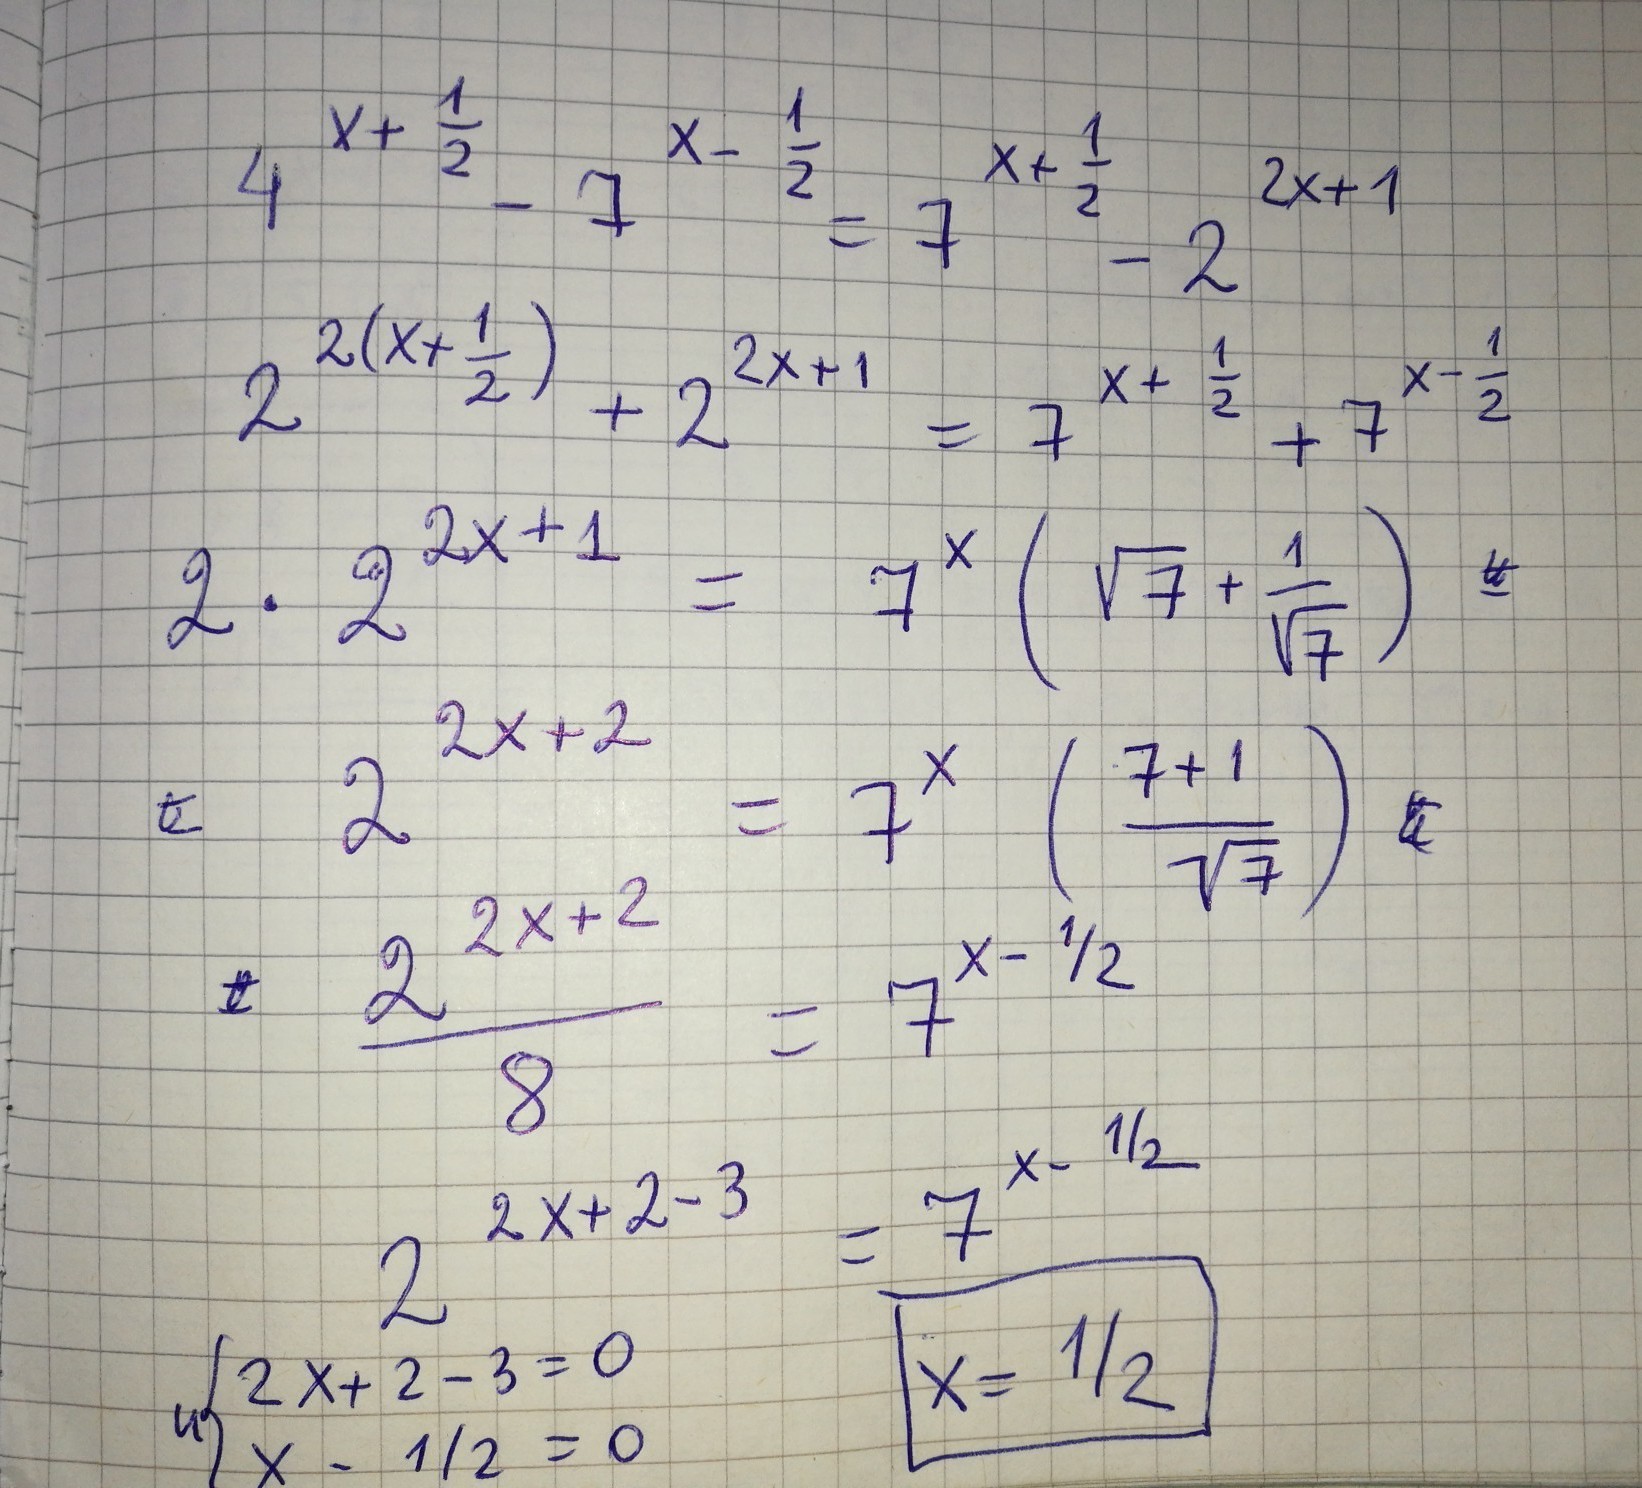 4^{x+\frac{1}{2}} - 7^{x-\frac{1}{2}} = 7^{x+\frac{1}{2}} - 2^{2x+1}
2^{2(x+\frac{1}{2})} + 2^{2x+1} = 7^{x+\frac{1}{2}} + 7^{x-\frac{1}{2}}
2 \cdot 2^{2x+1} = 7^x (\sqrt{7} + \frac{1}{\sqrt{7}})
2^{2x+2} = 7^x (\frac{7+1}{\sqrt{7}})
\frac{2^{2x+2}}{8} = 7^{x-1/2}
2^{2x+2-3} = 7^{x-1/2}
{2x+2-3=0
x-1/2=0
x=1/2